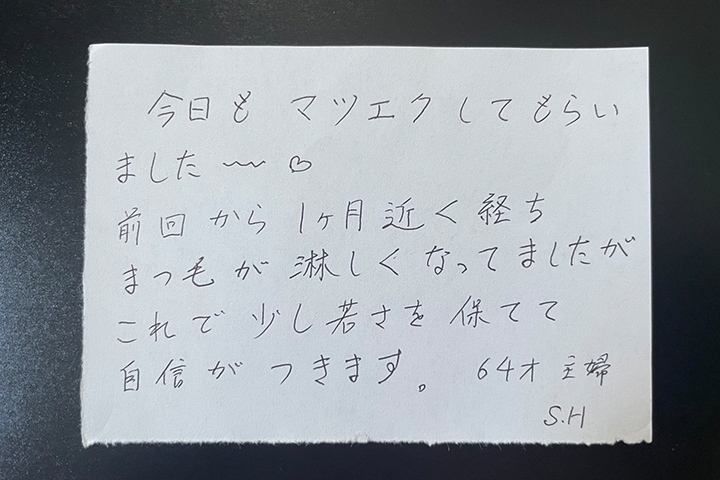 今日も マツエクしてもらい
ました〜〜♡
前回から 1ヶ月近く経ち
まつ毛が淋しくなってましたが
これで少し若さを保てて
自信がつきます。 64才 主婦
S.H